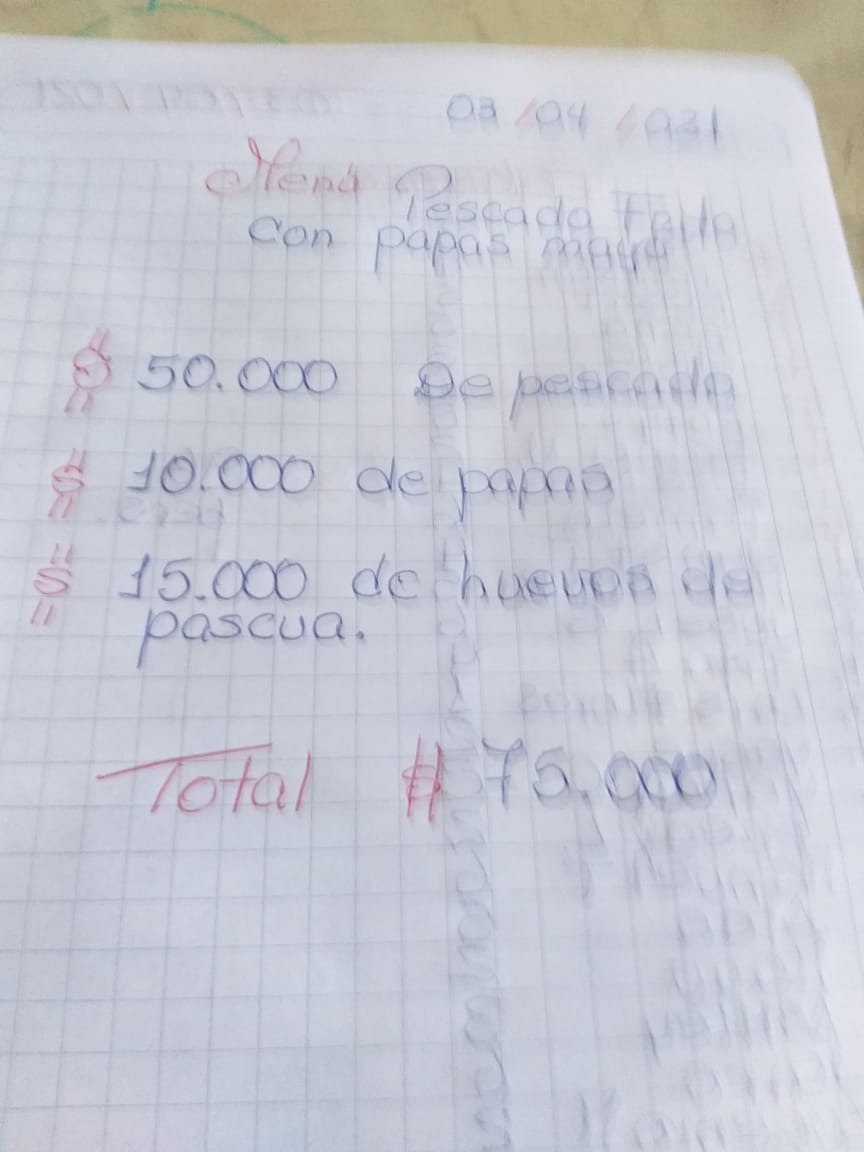 03/04/021
Menú Pescado Frito
con papas mayo
$ 50.000 De pescado
$ 10.000 de papas
$ 15.000 de huevos de
pascua.
Total $ 75.000